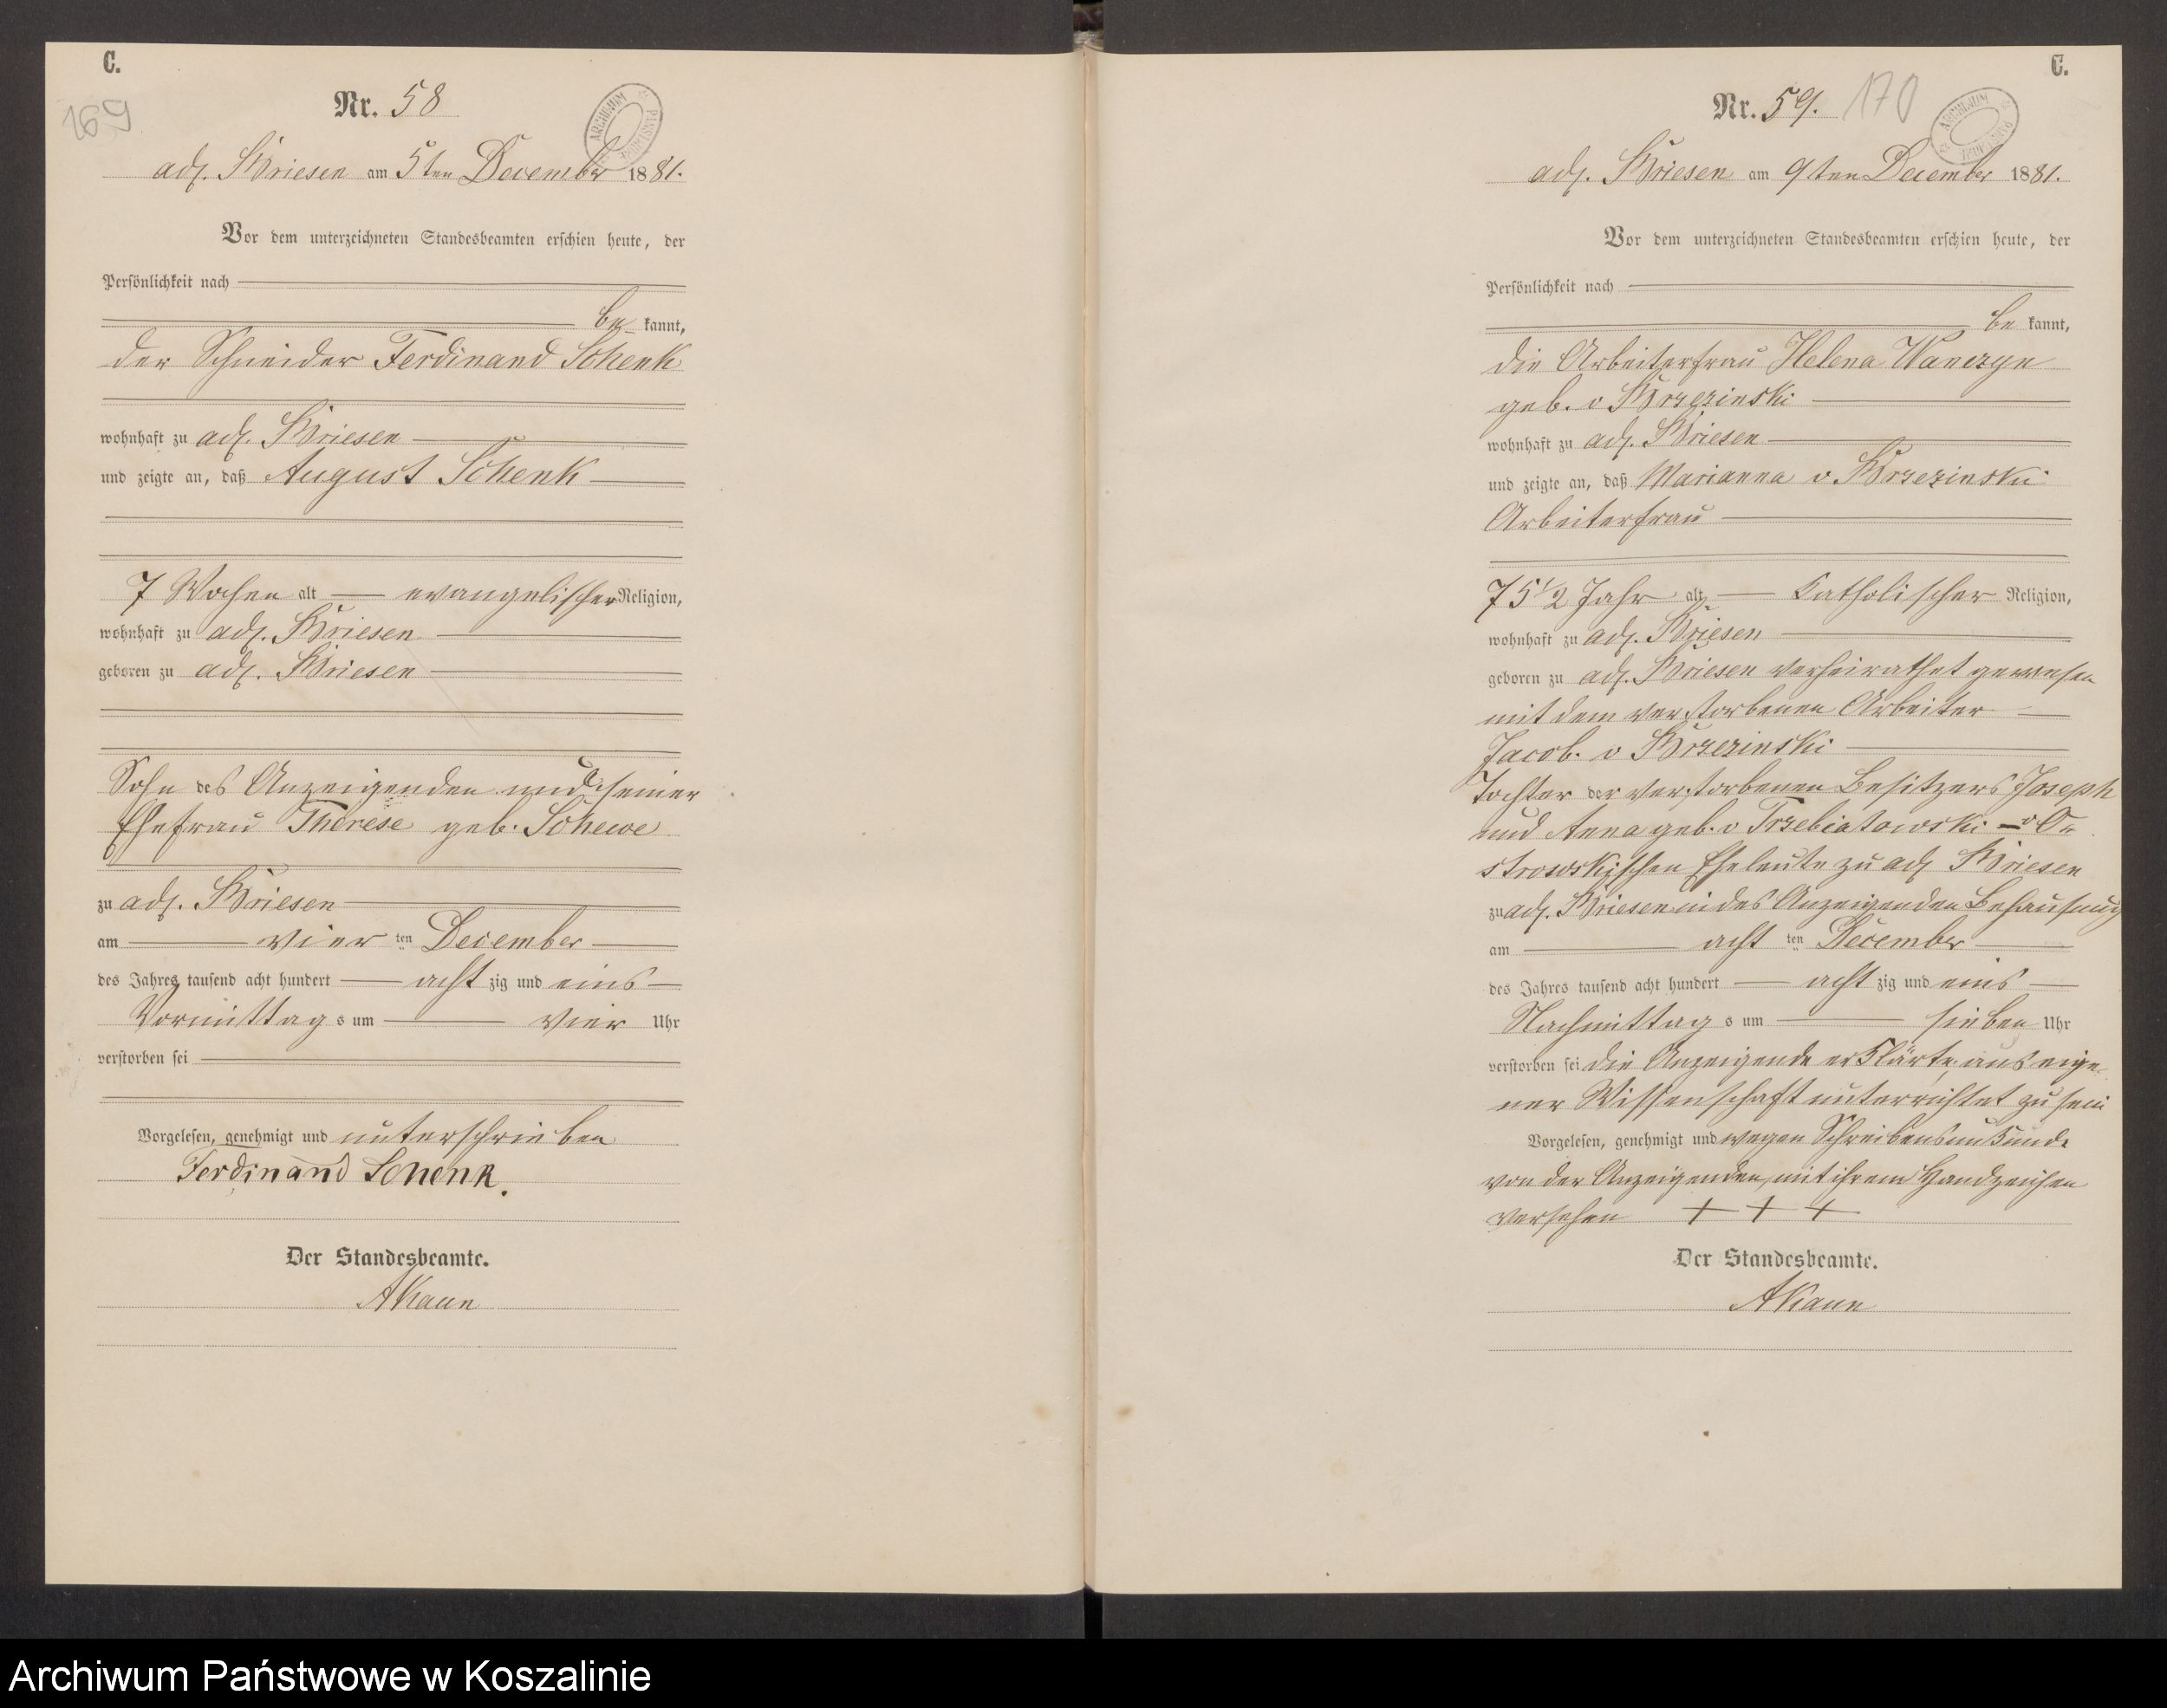 C.
169
Nr. 58
adl. Briesen am 5ten December 1881.
Vor dem unterzeichneten Standesbeamten erschien heute, der
Persönlichkeit nach
be kannt,
der Schneider Ferdinand Schenk
wohnhaft zu adl. Briesen
und zeigte an, daß August Schenk
7 Wochen alt evangelischer Religion,
wohnhaft zu adl. Briesen
geboren zu adl. Briesen
Sohn des Anzeigenden und seiner
Ehefrau Therese geb. Schewe
zu adl. Briesen
am vier ten December
des Jahres tausend acht hundert acht zig und eins
Vormittag s um vier Uhr
verstorben sei
Vorgelesen, genehmigt und unterschrieben
Ferdinand Schenk.
Der Standesbeamte.
AKaun
C.
Nr. 59. 170
adl. Briesen am 9ten December 1881.
Vor dem unterzeichneten Standesbeamten erschien heute, der
Persönlichkeit nach
be kannt,
die Arbeiterfrau Helena Wanczyn
geb. v Brzezinski
wohnhaft zu adl. Briesen
und zeigte an, daß Marianna v Brzezinski
Arbeiterfrau
75 1/2 Jahr alt Katholischer Religion,
wohnhaft zu adl. Briesen
geboren zu adl. Briesen verheirathet gewesen
mit dem verstorbenen Arbeiter
Jacob. v Brzezinski
Tochter der verstorbenen Besitzers Joseph
und Anna geb. v Trzebiatowski - v O=
strowskischen Eheleute zu adl Briesen
zu adl. Briesen in des Anzeigenden Behausung
am acht ten December
des Jahres tausend acht hundert acht zig und eins
Nachmittag s um sieben Uhr
verstorben sei die Anzeigende erklärte, aus eige-
ner Wissenschaft unterrichtet zu sein
Vorgelesen, genehmigt und wegen Schreibensunkunde
von der Anzeigenden, mit ihrem Handzeichen
versehen + + +
Der Standesbeamte.
AKaun
Archiwum Państwowe w Koszalinie